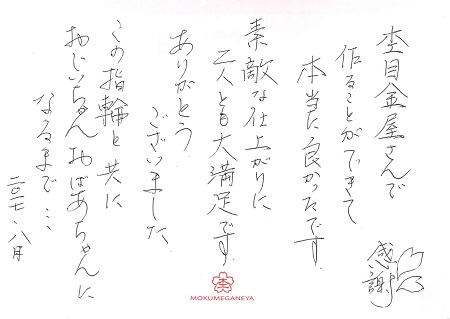 杢目金屋さんで
作ることができて
本当に良かったです
素敵な仕上がりに
二人とも大満足です。
ありがとう
ございました
この指輪と共に
おじいちゃんおばあちゃんに
なるまで…
二〇一七・八月
感謝
MOKUMEGANEYA